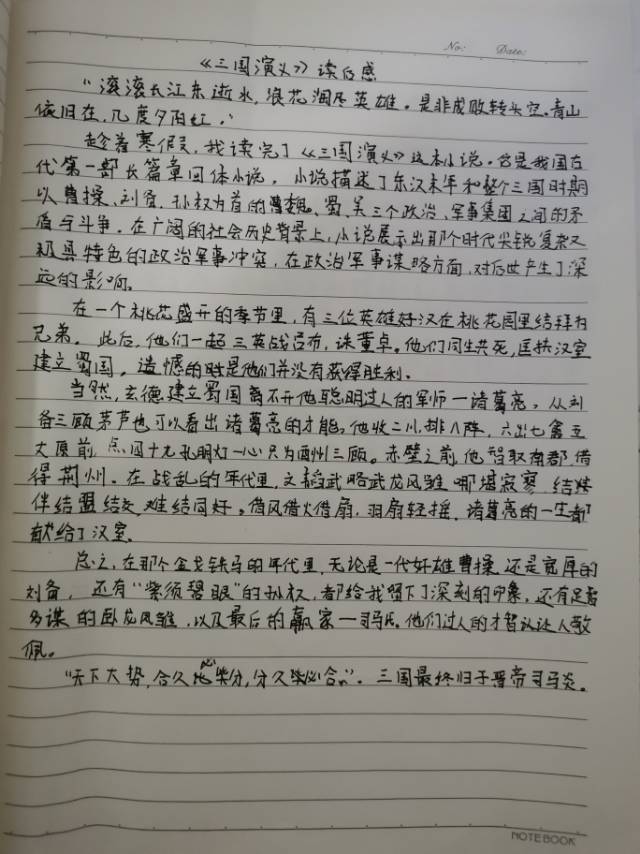 No: Date:
《三国演义》读后感
“滚滚长江东逝水,浪花淘尽英雄。是非成败转头空。青山
依旧在,几度夕阳红。”
趁着寒假,我读完了《三国演义》这本小说。它是我国古
代第一部长篇章回体小说。小说描述了东汉末年和整个三国时期
以曹操、刘备、孙权为首的曹魏、蜀、吴三个政治、军事集团之间的矛
盾与斗争。在广阔的社会历史背景上,小说展示出那个时代尖锐复杂又
极具特色的政治军事冲突,在政治军事谋略方面,对后世产生了深
远的影响。
在一个桃花盛开的季节里,有三位英雄好汉在桃花园里结拜为
兄弟。此后,他们一起三英战吕布,诛董卓。他们同生共死,匡扶汉室
建立蜀国,遗憾的是他们并没有获得胜利。
当然,玄德建立蜀国离不开他聪明过人的军师一诸葛亮,从刘
备三顾茅芦也可以看出诸葛亮的才能。他收二川,排八阵,六出七禽五
丈原前,点四十九孔明灯一心只为酬三顾。赤壁之前,他智取南郡,借
得荆州。在战乱的年代里,文韬武略武龙凤雏,哪堪寂寥,结
伴结盟结交,难结同好。借风借火借扇,羽扇轻摇,诸葛亮的一生都
献给了汉室。
总之,在那个金戈铁马的年代里,无论是一代奸雄曹操,还是宽厚的
刘备,还有“紫须碧眼”的孙权,都给我留下了深刻的印象,还有足智
多谋的卧龙凤雏,以及最后的赢家一司马氏。他们过人的才智认让人敬
佩。
“天下大势,合久必分,分久必合”。三国最终归于晋帝司马炎。
NOTEBOOK